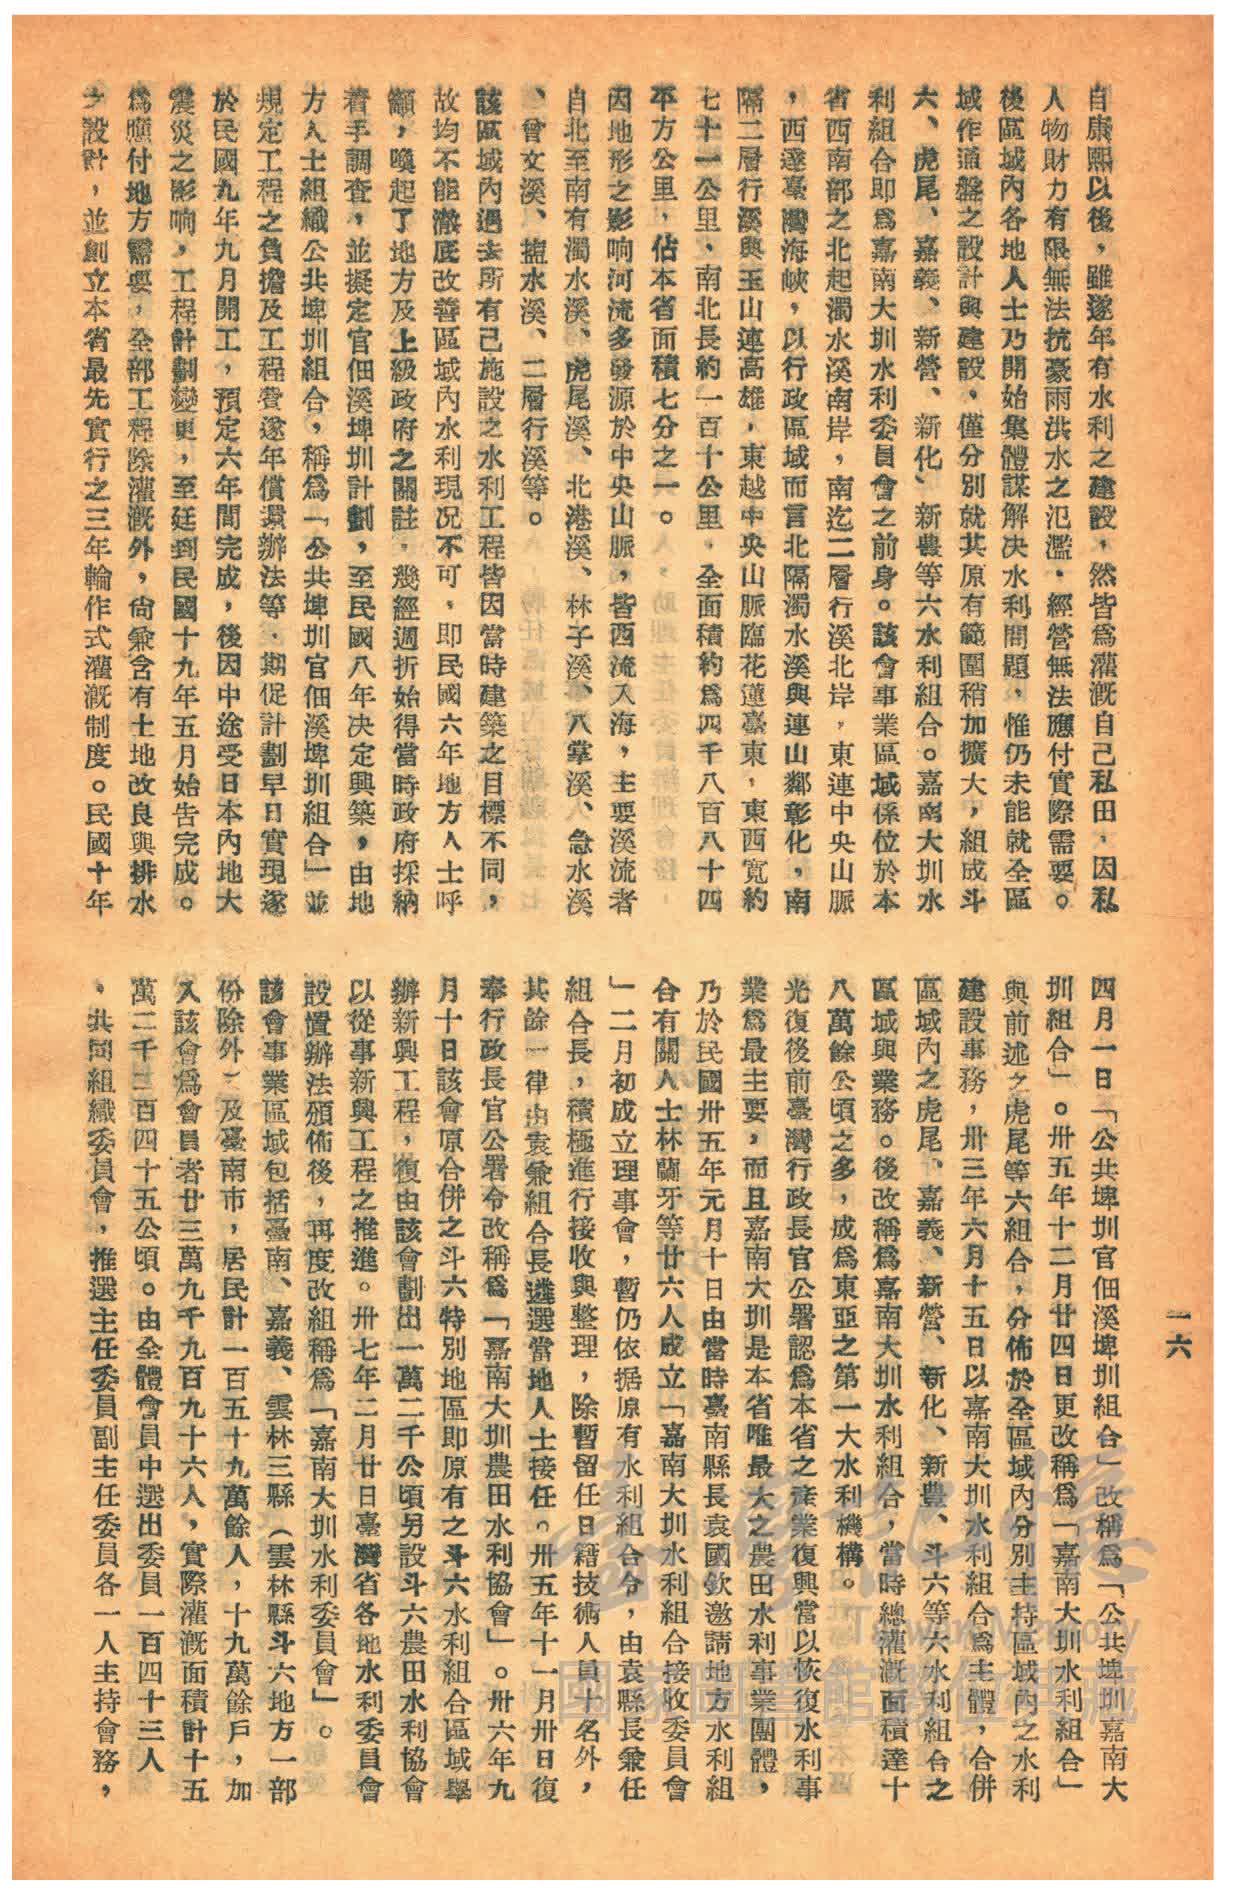 自康熙以後，雖遂年有水利之建設，然皆爲灌漑自己私田，因私
人物財力有限無法抗豪雨洪水之氾濫，經營無法應付實際需要。
後區域內各地人士乃開始集體謀解决水利問題，惟仍未能就全區
域作通盤之設計與建設，僅分別就其原有範圍稍加擴大，組成斗
六、虎尾、嘉義、新營、新化、新豊等六水利組合。嘉南大圳水
利組合即爲嘉南大圳水利委員會之前身。該會事業區域係位於本
省西南部之北起濁水溪南岸，南迄二層行溪北岸，東連中央山脈
，西遂臺灣海峽，以行政區域而言北隔濁水溪與連山鄰彰化，南
隔二層行溪與玉山連高雄，東越中央山脈臨花蓮臺東，東西寬約
七十一公里，南北長約一百十公里，全面積約爲四千八百八十四
平方公里，佔本省面積七分之一。
因地形之影响河流多發源於中央山脈，皆西流入海，主要溪流者
自北至南有濁水溪、虎尾溪、北港溪、林子溪、八掌溪、急水溪
、曾文溪、塩水溪、二層行溪等。
該區域內過去所有已施設之水利工程皆因當時建築之目標不同，
故均不能澈底改善區域內水利現况不可，即民國六年地方人士呼
籲，喚起了地方及上級政府之關註，幾經週折始得當時政府採納
着手調查，並擬定官佃溪埤圳計劃，至民國八年决定興築，由地
方人士組織公共埤圳組合，稱爲「公共埤圳官佃溪埤圳組合」並
規定工程之負擔及工程費遂年償還辦法等，期促計劃早日實現遂
於民國九年九月開工，預定六年間完成，後因中途受日本內地大
震災之影响，工程計劃變更，至廷到民國十九年五月始告完成。
爲應付地方需要，全部工程除灌漑外，尙兼含有土地改良與排水
之設計，並創立本省最先實行之三年輪作式灌漑制度。民國十年
四月一日「公共埤圳官佃溪埤圳組合」改稱爲「公共埤圳嘉南大
圳組合」。卅五年十二月廿四日更改稱爲「嘉南大圳水利組合」
與前述之虎尾等六組合，分佈於全區域內分別主持區域內之水利
建設事務，卅三年六月十五日以嘉南大圳水利組合爲主體，合併
區域內之虎尾、嘉義、新營、新化、新豊、斗六等六水利組合之
區域與業務。後改稱爲嘉南大圳水利組合，當時總灌漑面積達十
八萬餘公頃之多，成爲東亞之第一大水利機構。
光復後前臺灣行政長官公署認爲本省之產業復興當以恢復水利事
業爲最主要，而且嘉南大圳是本省唯最大之農田水利事業團體，
乃於民國卅五年元月十日由當時臺南縣長袁國欽邀請地方水利組
合有關人士林蘭牙等廿六人成立「嘉南大圳水利組合接收委員會
」二月初成立理事會，暫仍依据原有水利組合令，由袁縣長兼任
組合長，積極進行接收與整理，除暫留任日籍技術人員十名外，
其餘一律由袁兼組合長遴選當地人士接任。卅五年十一月卅日復
奉行政長官公署令改稱爲「嘉南大圳農田水利協會」。卅六年九
月十日該會原合併之斗六特別地區即原有之斗六水利組合區域舉
辦新興工程，復由該會劃出一萬二千公頃另設斗六農田水利協會
以從事新興工程之推進。卅七年二月廿日臺灣省各地水利委員會
設置辦法頒佈後，再度改組稱爲「嘉南大圳水利委員會」。
該會事業區域包括臺南、嘉義、雲林三縣（雲林縣斗六地方一部
份除外）及臺南市，居民計一百五十九萬餘人，十九萬餘戶，加
入該會爲會員者廿三萬九千九百九十六人，實際灌漑面積計十五
萬二千二百四十五公頃。由全體會員中選出委員一百四十三人
，共同組織委員會，推選主任委員副主任委員各一人主持會務，
一六
臺灣記憶
Taiwan Memory
國家圖書館數位典藏